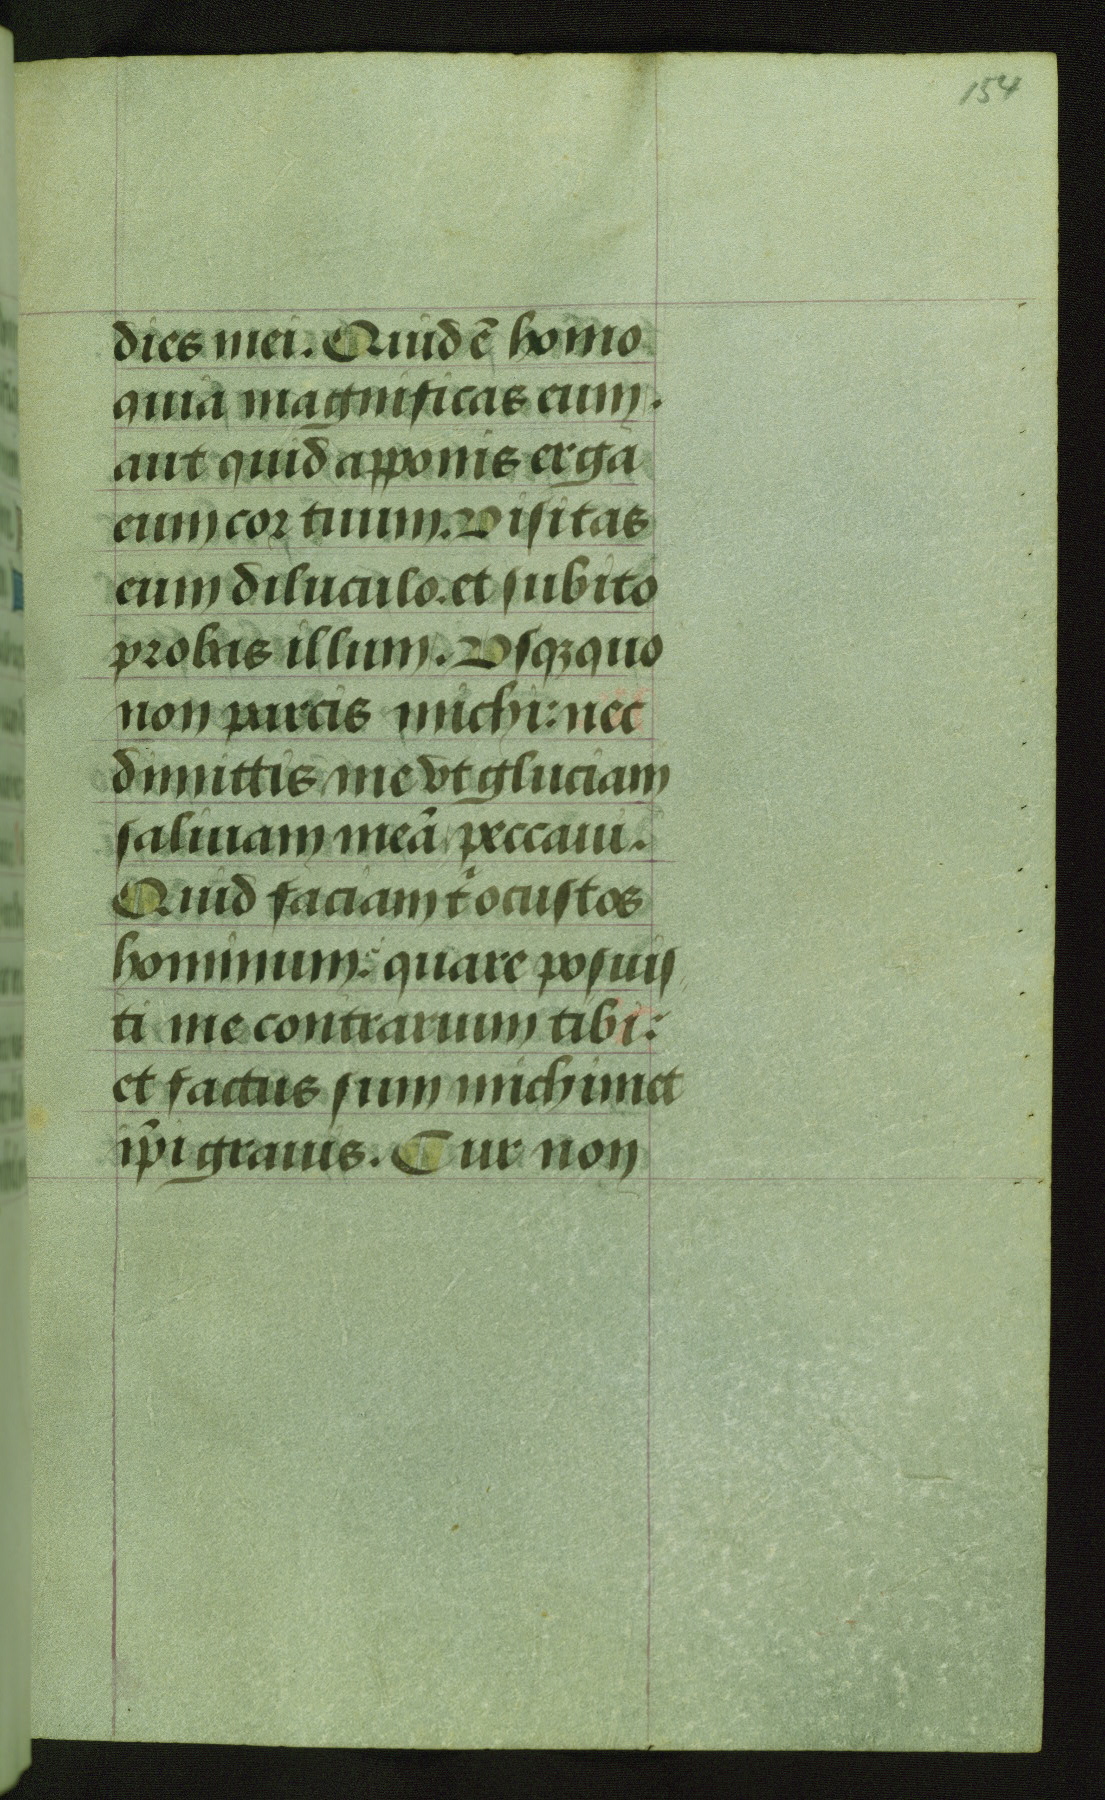 154
dies mei. Quid ē homo
quia magnificas eum.
aut quid apponis erga
eum cor tuum. Visitas
eum diluculo. et subito
probas illum. Vsqꝫ quo
non parcis michi: nec
dimittis me vt gluciam
saliuam meā peccaui.
Quid faciam t̾ o custos
hominum: quare posuis
ti me contrarium tibi:
et factus sum michimet
ip̄i grauis. Cur non